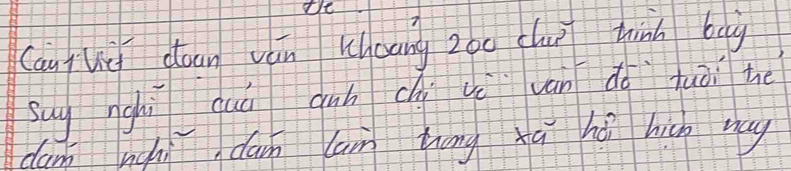 Câu 1 Viết đoạn văn khoảng 200 chữ trình bày
suy nghĩ của anh chị về vấn đề tuổi trẻ
dám nghĩ, dám làm trong xã hội hiện nay